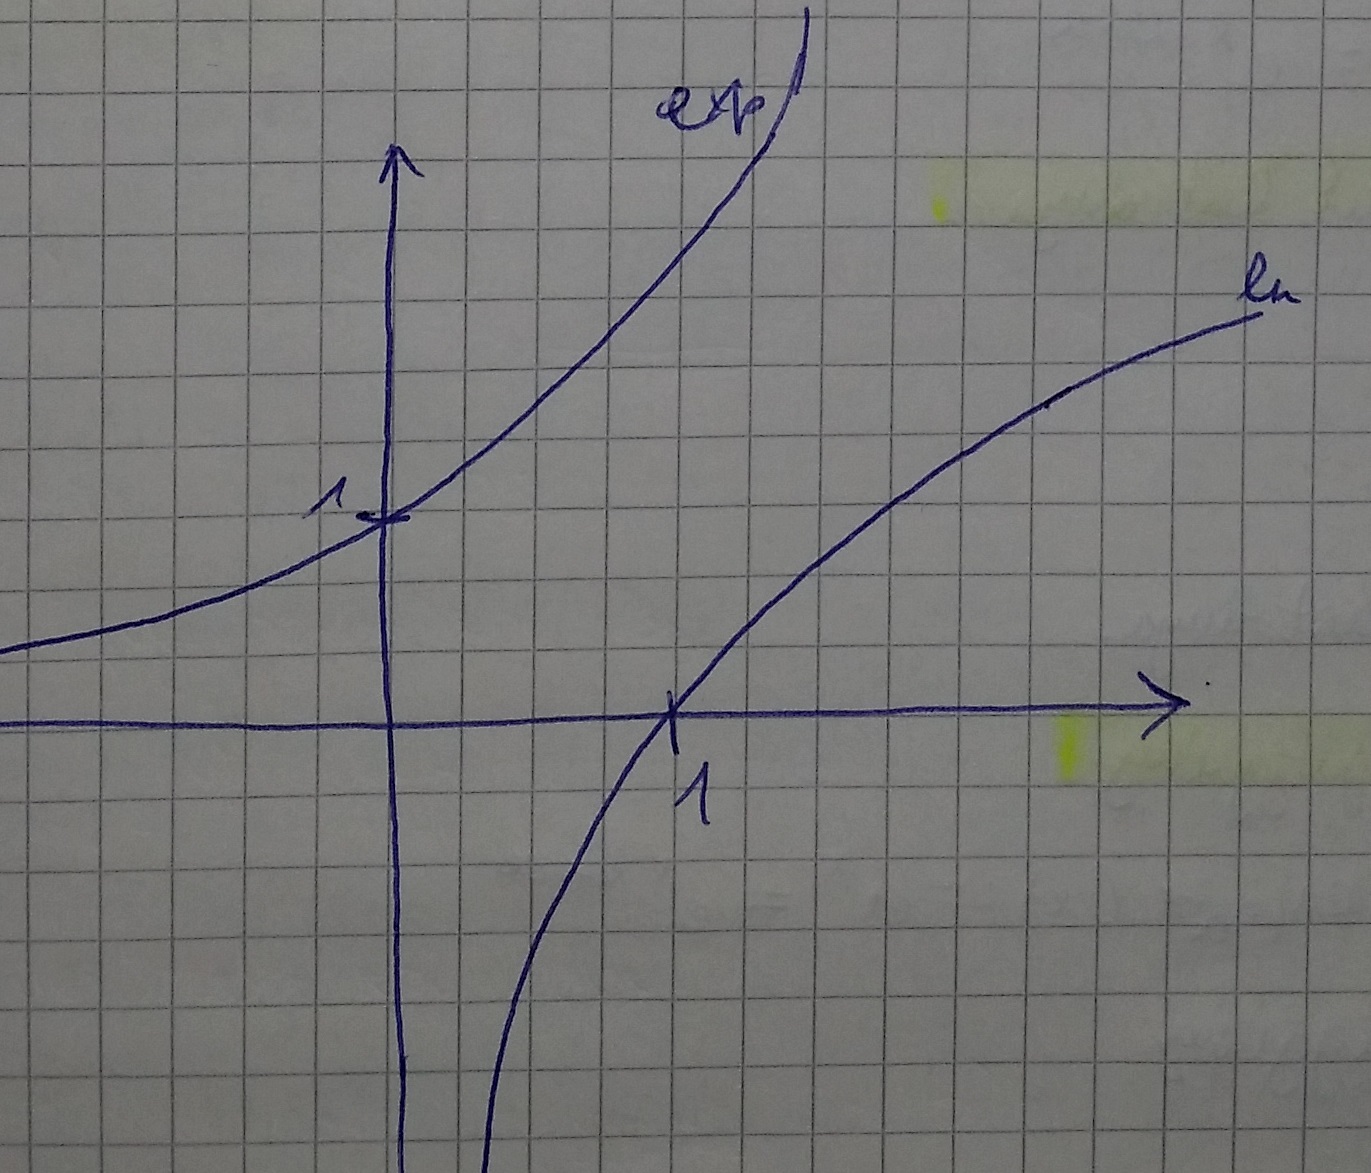 exp
ln
1
1